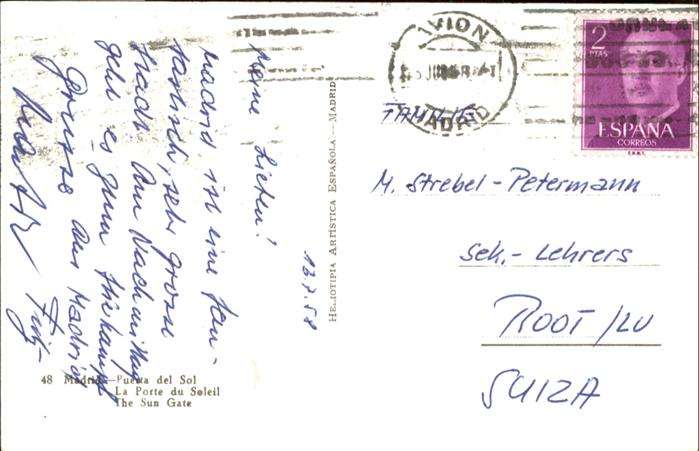 Meine Lieben!
Madrid ist eine fan-
tastisch, sehr grosse
Stadt. Am Nachmittag
geht es zum Stierkampf
Grüsse aus Madrid
Fritz
13.7.58
HELIOTIPIA ARTÍSTICA ESPAÑOLA — MADRID
48 Madrid—Puerta del Sol
La Porte du Soleil
The Sun Gate
AVION
MADRID
2
PTAS
ESPAÑA
CORREOS
FAMILIE
M. Strebel-Petermann
Sek.-Lehrers
ROOT/LU
SUIZA